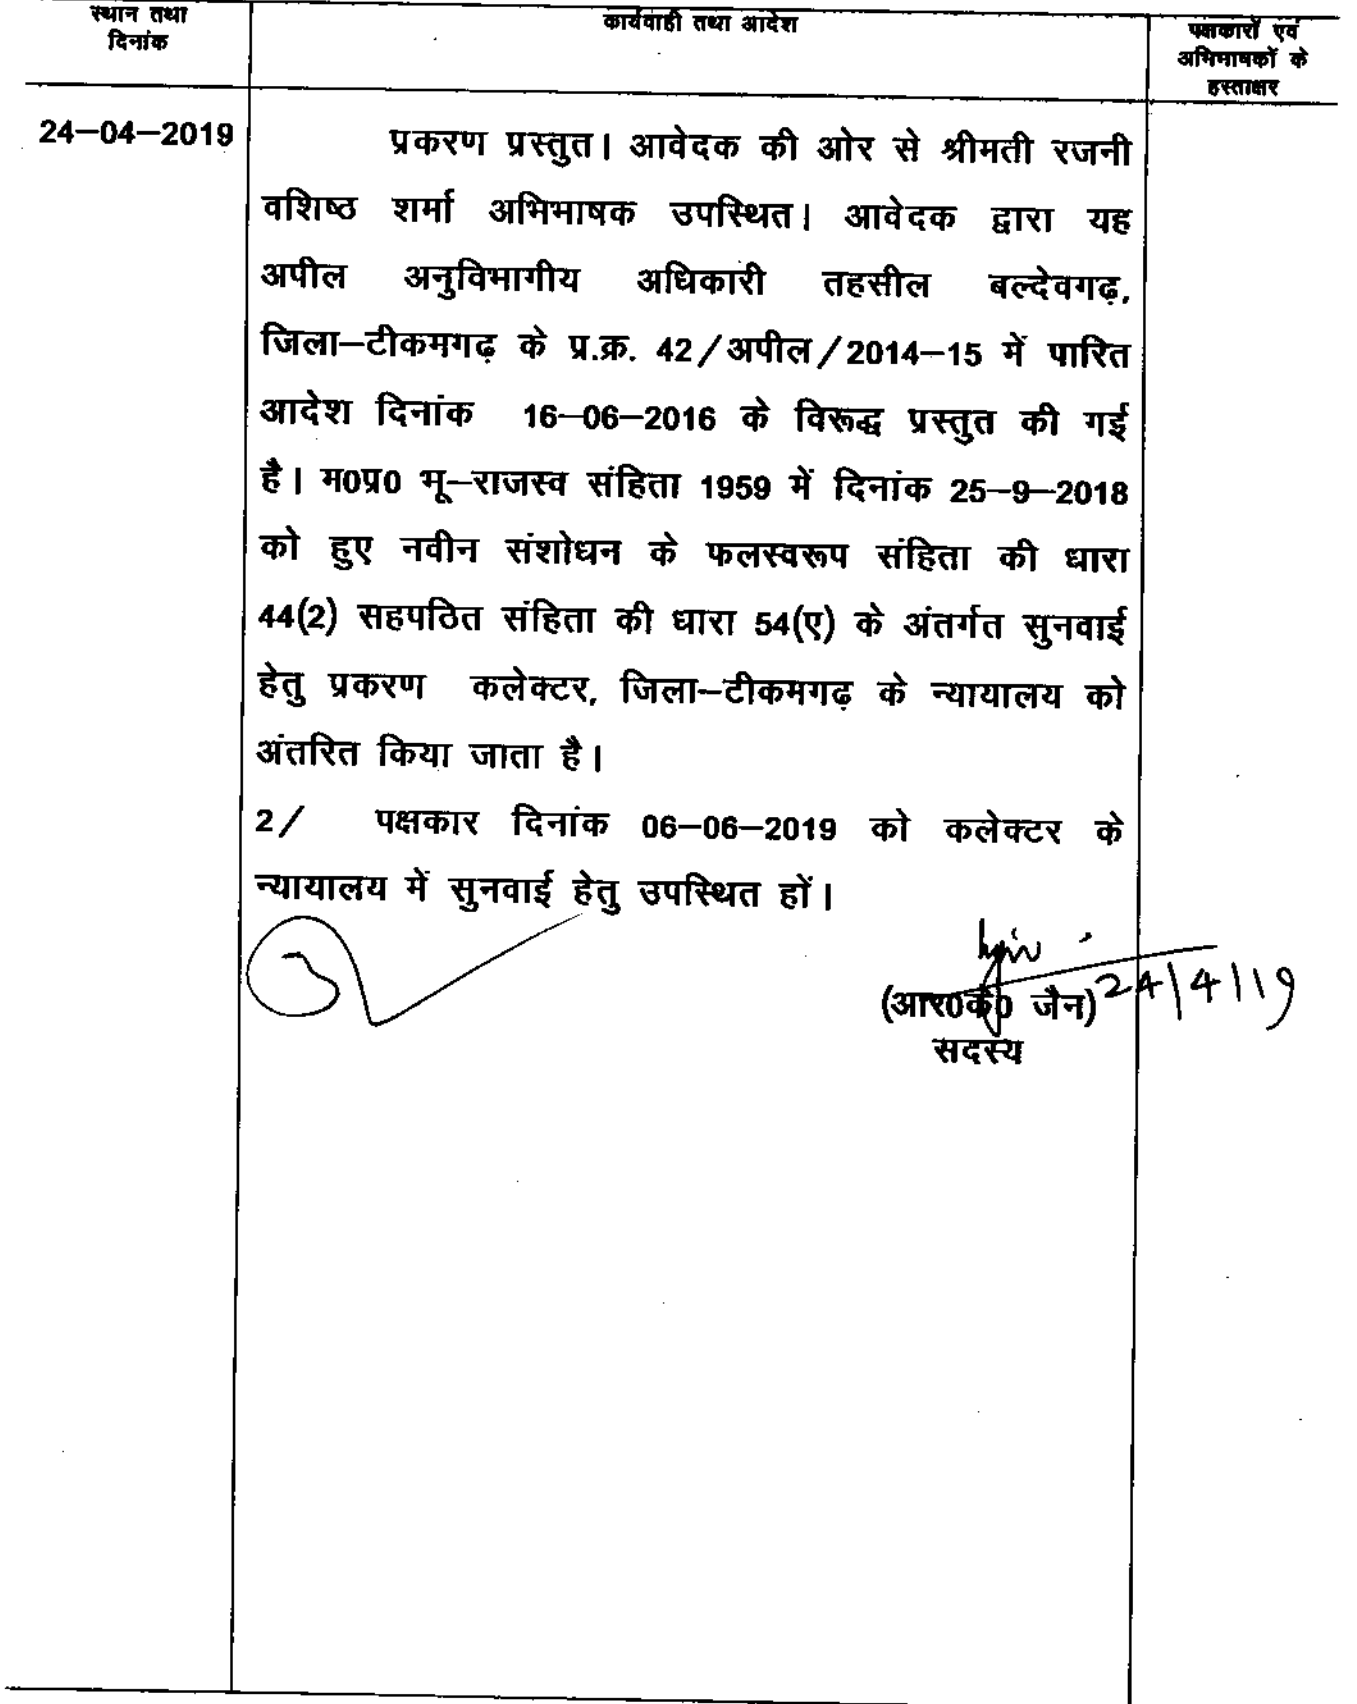 स्थान तथा
दिनांक
कार्यवाही तथा आदेश
पक्षकारों एवं
अभिभाषकों के
हस्ताक्षर
24–04–2019
प्रकरण प्रस्तुत। आवेदक की ओर से श्रीमती रजनी
वशिष्ठ शर्मा अभिभाषक उपस्थित। आवेदक द्वारा यह
अपील अनुविभागीय अधिकारी तहसील बल्देवगढ़,
जिला–टीकमगढ़ के प्र.क्र. 42/अपील/2014–15 में पारित
आदेश दिनांक 16–06–2016 के विरूद्ध प्रस्तुत की गई
है। म0प्र0 भू–राजस्व संहिता 1959 में दिनांक 25–9–2018
को हुए नवीन संशोधन के फलस्वरूप संहिता की धारा
44(2) सहपठित संहिता की धारा 54(ए) के अंतर्गत सुनवाई
हेतु प्रकरण कलेक्टर, जिला–टीकमगढ़ के न्यायालय को
अंतरित किया जाता है।
2/ पक्षकार दिनांक 06–06–2019 को कलेक्टर के
न्यायालय में सुनवाई हेतु उपस्थित हों।
(आर0के0 जैन) 24/4/19
सदस्य